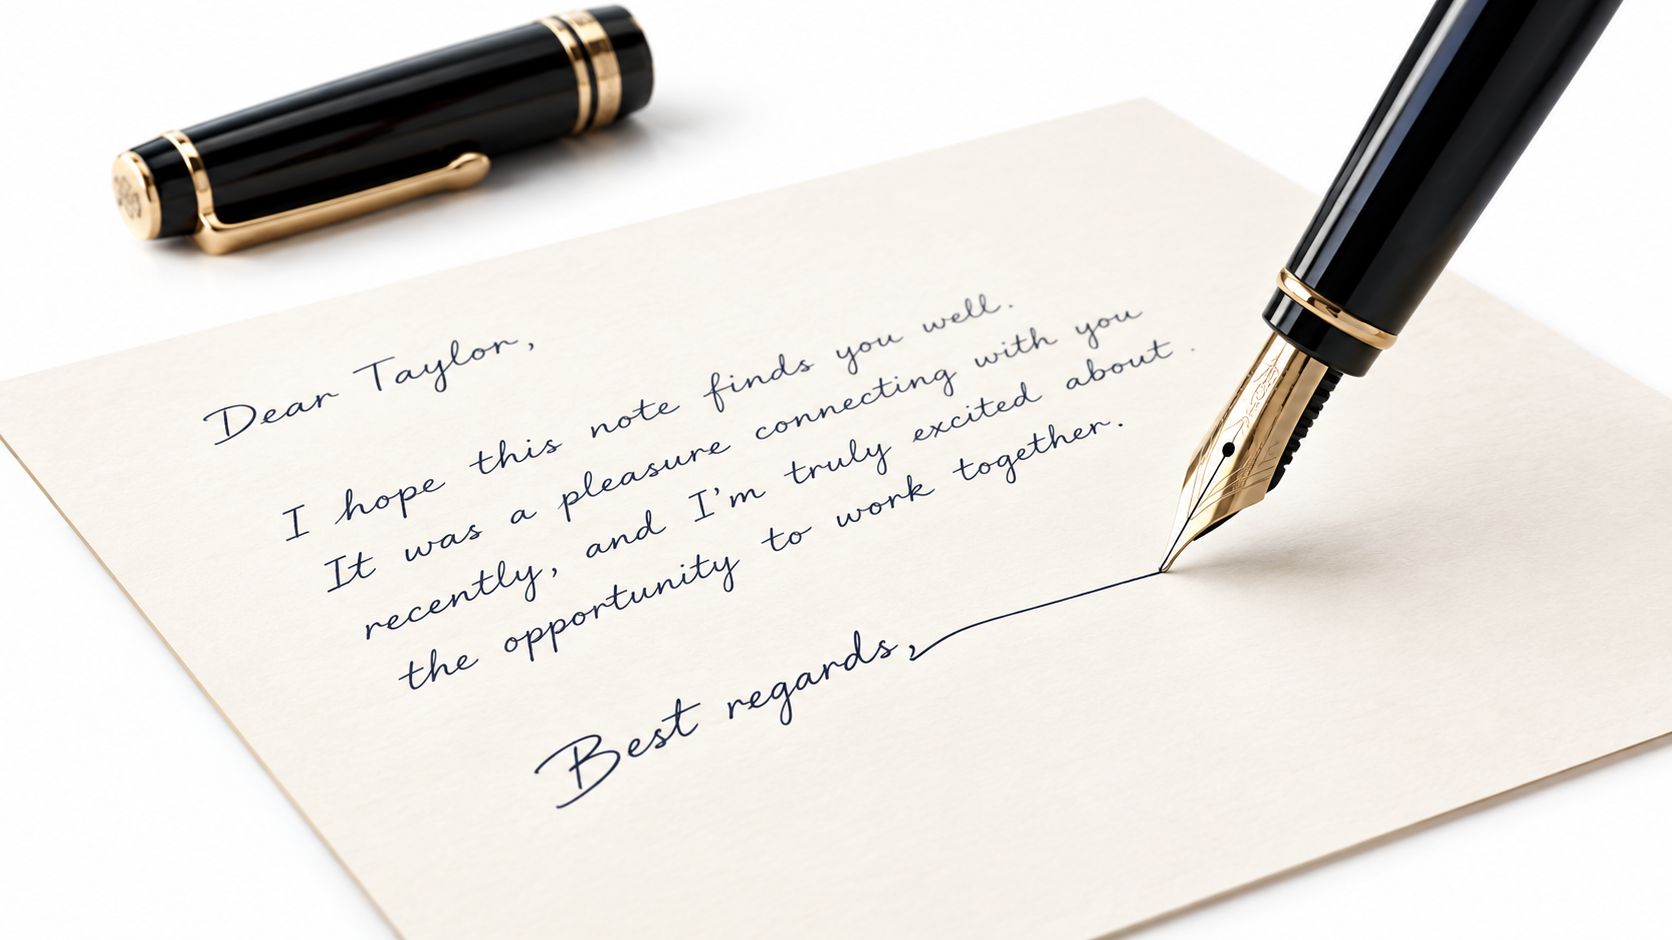 Dear Taylor,
I hope this note finds you well.
It was a pleasure connecting with you
recently, and I'm truly excited about.
the opportunity to work together.
Best regards,